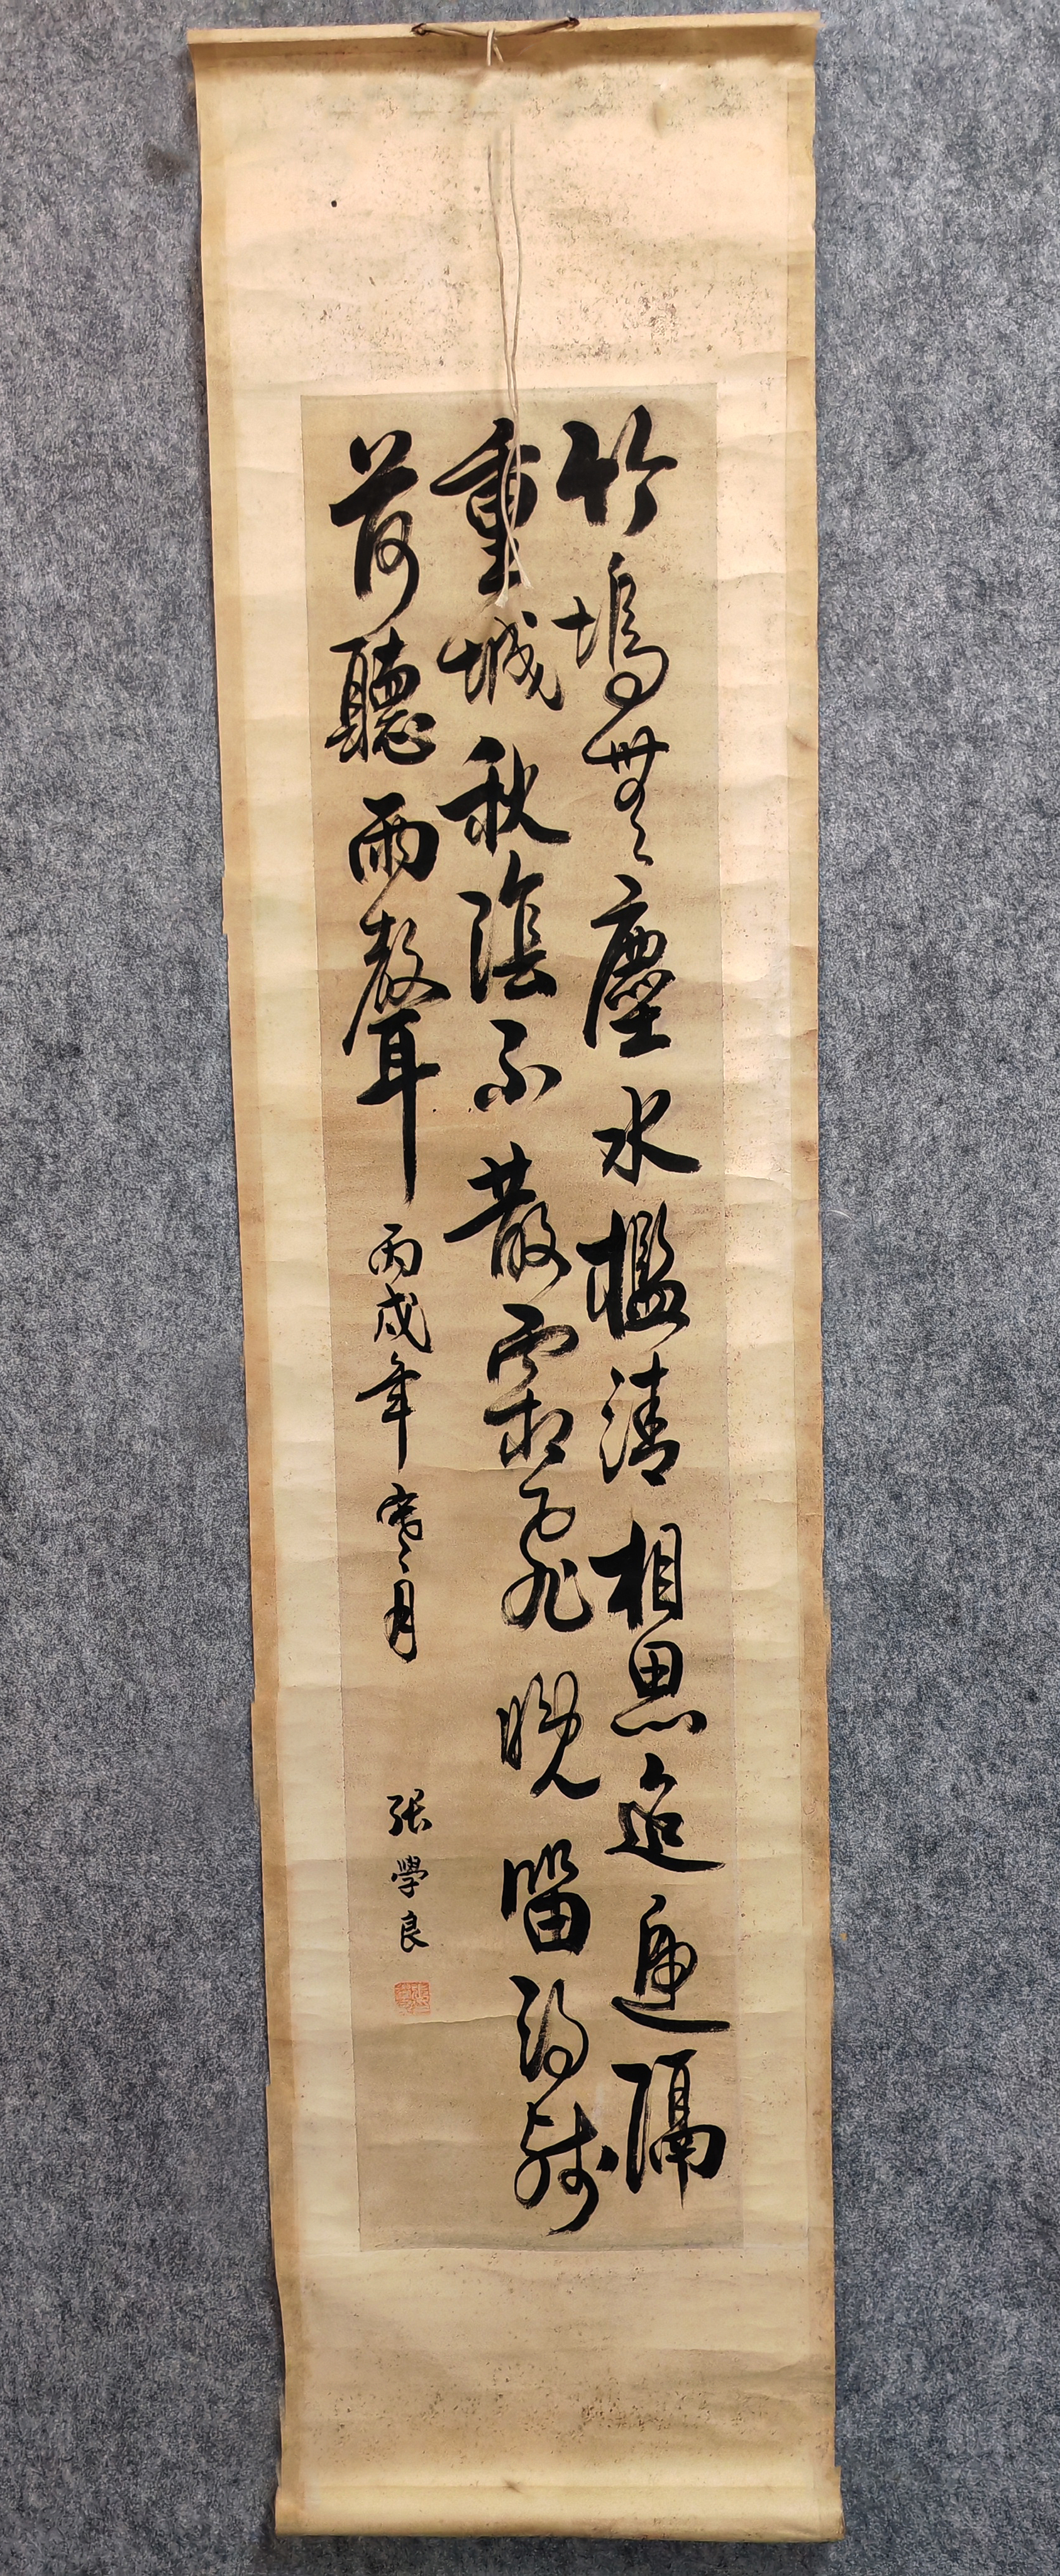 竹塢無塵水檻清相思迢遞隔
重城秋陰不散霜飛晚留得殘
荷聽雨聲
丙戌年寒月
張學良